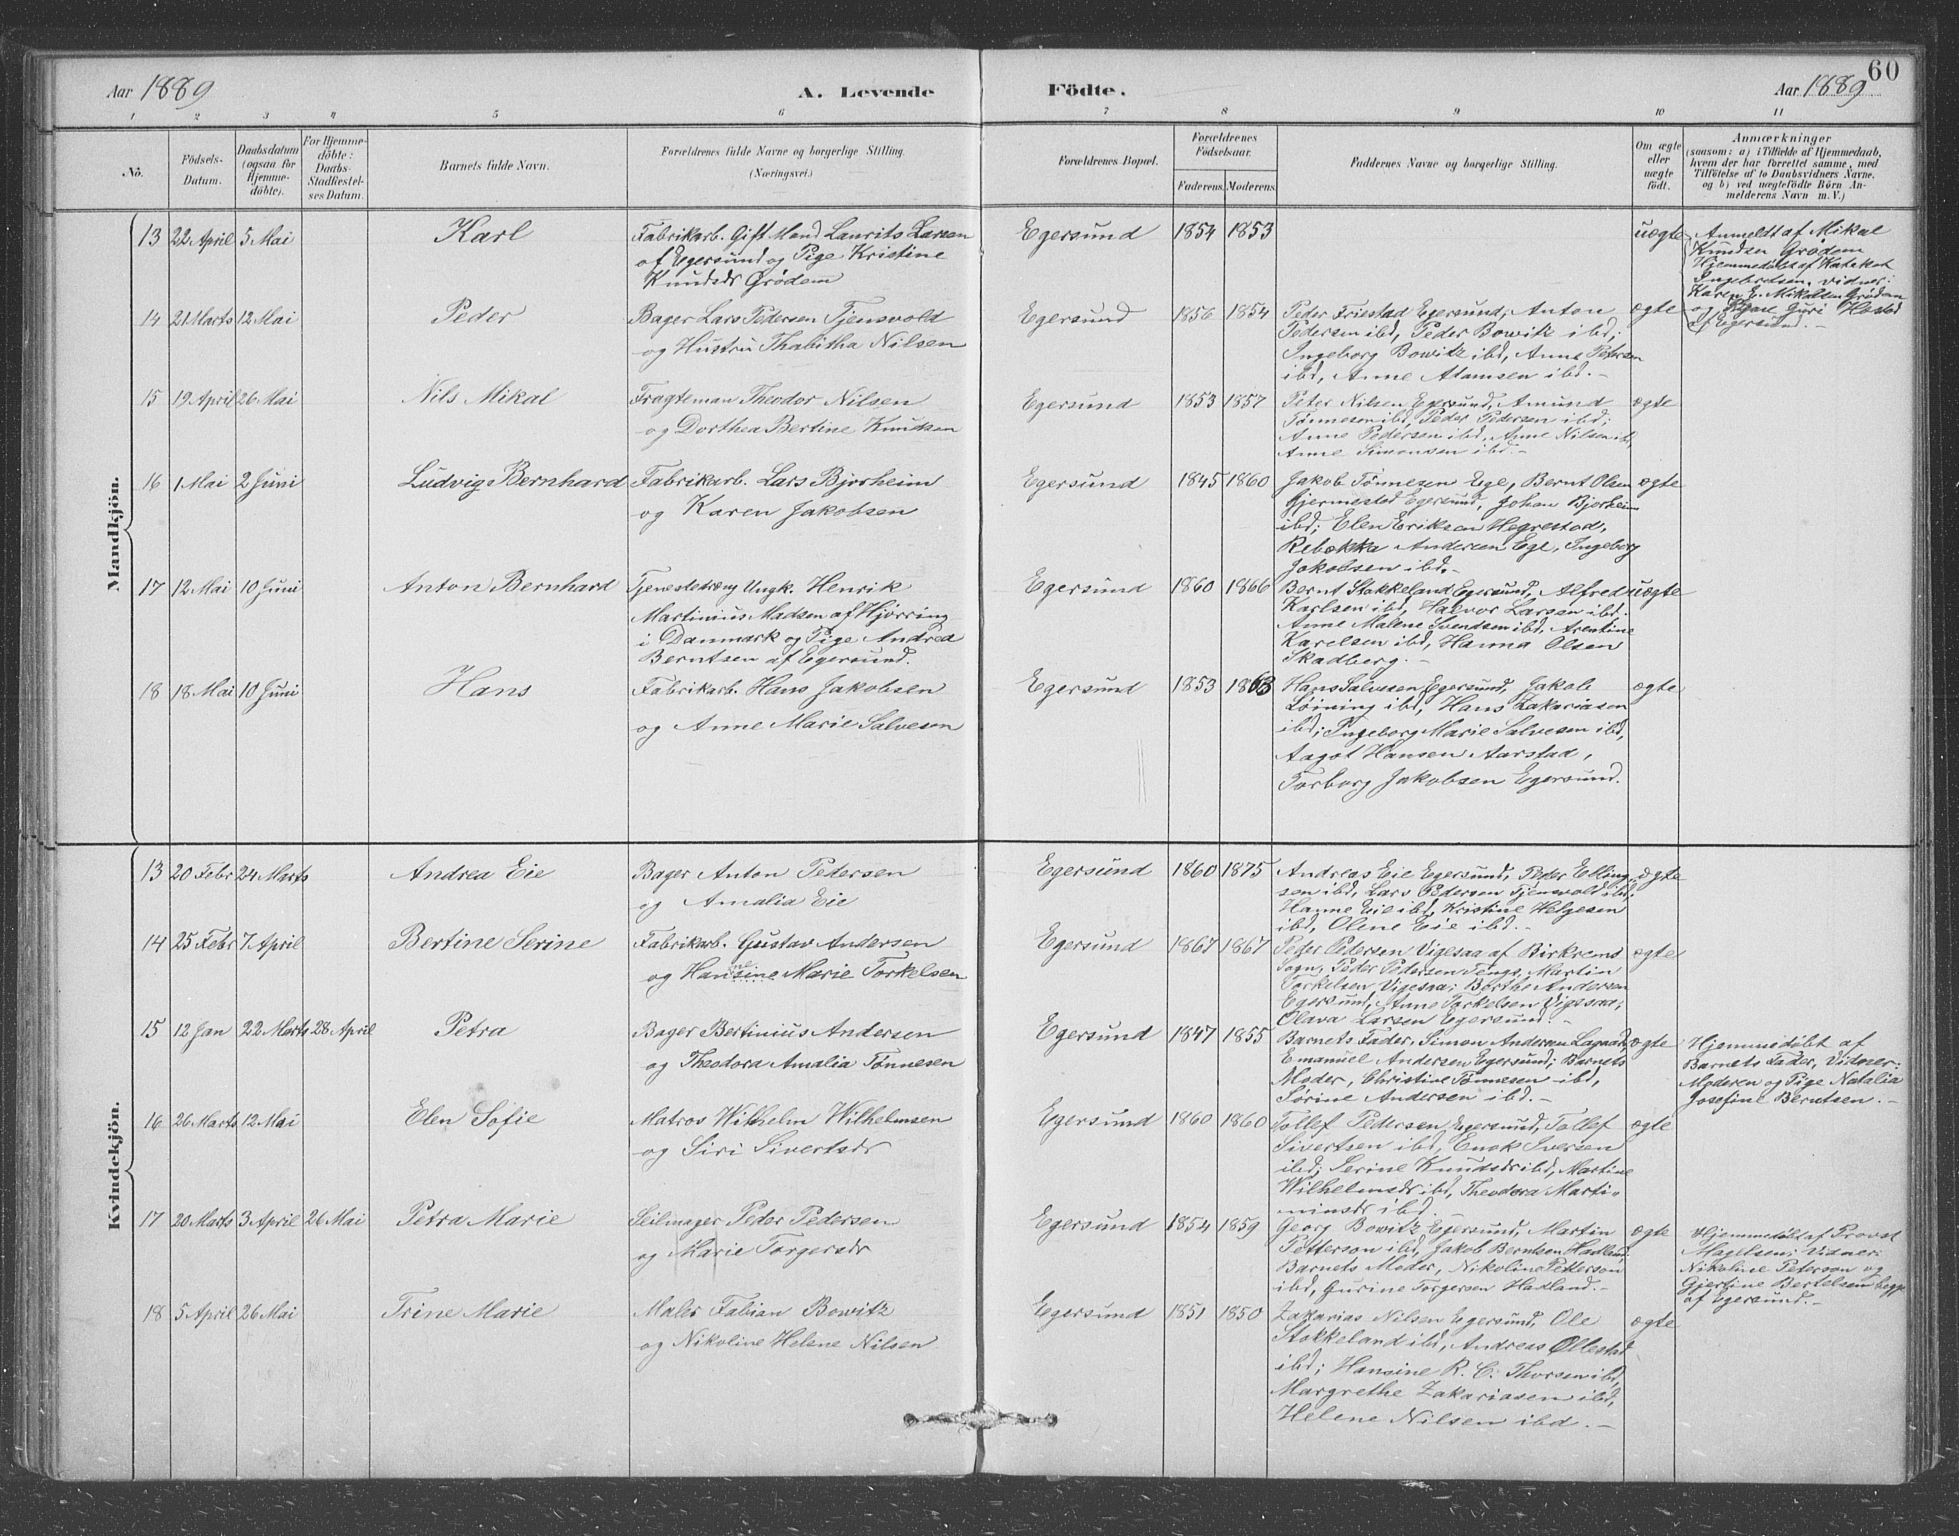 60
Aar 1889
A. Levende
Födte.
Aar 1889
1 2 3 4 5 6 7 8 9 10 11
No.
Födsels-
Datum.
Daabsdatum
(ogsaa for
Hjemme-
döbte).
For Hjemme-
döbte:
Daabs-
Stadfæstel-
ses Datum.
Barnets fulde Navn.
Forældrenes fulde Navne og borgerlige Stilling.
(Næringsvei.)
Forældrenes Bopæl.
Forældrenes
Födselsaar.
Faderens. Moderens.
Faddernes Navne og borgerlige Stilling.
Om ægte
eller
uægte
födt.
Anmærkninger
(saasom: a) i Tilfælde af Hjemmedaab,
hvem der har forrettet samme, med
Tilföielse af to Daabsvidners Navne,
og b) ved uægtefödte Börn An-
melderens Navn m. V.)
Mandkjön.
13 22 April 5 Mai Karl
Fabrikarb. Gift Mand Laurits Larsen
af Egersund og Pige Kristine
Knudsdr Grødem
Egersund 1854 1853 uægte
Anmeldt af Mikal
Knudsen Grødem
Hjemmedøbt af Kateket
Ingebretsen, vidner:
Karen E. Mikalsen Grødem
og Pigen Guri Hostad
af Egersund. -
14 21 Marts 12 Mai Peder
Bager Lars Pedersen Tjensvold
og Hustru Thabitha Nilsen
Egersund 1856 1854
Peder Friestad Egersund, Anton
Pedersen ibd, Peder Bowitz ibd;
Ingeborg Bowitz ibd, Anne Petersen
ibd, Anne Adamsen ibd. -
ægte
15 19 April 26 Mai Nils Mikal
Fragteman Theodor Nilsen
og Dorthea Bertine Knudsen
Egersund 1853 1857
Peter Nilsen Egersund, Amund
Tønnesen ibd, Peder Pedersen ibd;
Anne Pedersen ibd, Anne Nilsen ib,
Anne Simonsen ibd. -
ægte
16 1 Mai 2 Juni Ludvig Bernhard
Fabrikarb. Lars Bjorheim
og Karen Jakobsen
Egersund 1845 1860
Jakob Tønnesen Ege, Bernt Olsen
Gjermestad Egersund, Johan Bjorheim
ibd; Elen Eriksen Hegrestad,
Rebekka Andersen Ege, Ingeborg
Jakobsen ibd.
ægte
17 12 Mai 10 Juni Anton Bernhard
Tjenestedreng Ungk. Henrik
Martinius Madsen af Hjørring
i Danmark og Pige Andrea
Berntsen af Egersund.
Egersund 1860 1866
Bernt Stokkeland Egersund, Alfred
Karlsen ibd, Halvor Larsen ibd.
Anne Malene Svendsen ibd, Arentine
Karelsen ibd, Hanna Olsen
Skadberg. -
uægte
18 18 Mai 10 Juni Hans
Fabrikarb. Hans Jakobsen
og Anne Marie Salvesen
Egersund 1853 1863
Hans Salvesen Egersund, Jakob
Løining ibd, Hans Zakariasen
ibd; Ingeborg Marie Salvesen ibd,
Aagot Hansen Aarstad,
Torborg Jakobsen Egersund.
ægte
Kvindekjön.
13 20 Febr 24 Marts Andrea Eie
Bager Anton Pedersen
og Amalia Eie
Egersund 1860 1875
Andreas Eie Egersund, Peder Elling-
sen ibd, Lars Pedersen Tjensvold ibd;
Hanne Eie ibd, Kristine Helgesen
ibd, Olene Eie ibd. -
ægte
14 25 Febr 7 April Bertine Serine
Fabrikarb. Gustav Andersen
og Hansine Marie Torkelsen
Egersund 1867 1867
Peder Pedersen Vigesaa af Birkrems
Sogn, Peder Pedersen Tengs, Martin
Torkelsen Vigesaa; Berthe Andersen
Egersund, Anne Torkelsen Vigesaa;
Olava Larsen Egersund. -
ægte
15 12 Jan 22 Marts 28 April Petra
Bager Bertinius Andersen
og Theodora Amalia Tønnesen
Egersund 1847 1855
Barnets Fader, Simon Andersen Lagaard,
Emanuel Andersen Egersund; Barnets
Moder, Christine Tønnesen ibd,
Sorine Andersen ibd. -
ægte
Hjemmedøbt af
Barnets Fader, Vidner:
Moderen og Pige Natalia
Josefine Berntsen. -
16 26 Marts 12 Mai Elen Sofie
Matros Wilhelm Wilhelmsen
og Siri Sivertsdr
Egersund 1860 1860
Tollef Pedersen Egersund, Tollef
Sivertsen ibd, Enok Iversen
ibd; Serine Knudsdr ibd, Martine
Wilhelmsdr ibd, Theodora Marti-
minsdr ibd.
ægte
17 20 Marts 3 April 26 Mai Petra Marie
Seilmager Peder Pedersen
og Marie Torgersdr
Egersund 1854 1859
Georg Bowitz Egersund, Martin
Petterson ibd, Jakob Berntsen Hadland;
Barnets Moder, Nikoline Petterson
ibd, Gurine Torgersen Hadland. -
ægte
Hjemmedøbt af Provst
Magelsen; Vidner:
Nikoline Peterson og
Gjertine Bertelsen begge
af Egersund. -
18 5 April 26 Mai Trine Marie
Maler Fabian Bowitz
og Nikoline Helene Nilsen
Egersund 1851 1850
Zakarias Nilsen Egersund, Ole
Stokkeland ibd, Andreas Øllestad
ibd; Hansine R. C. Thorsen ibd,
Margrethe Zakariasen ibd,
Helene Nilsen ibd. -
ægte